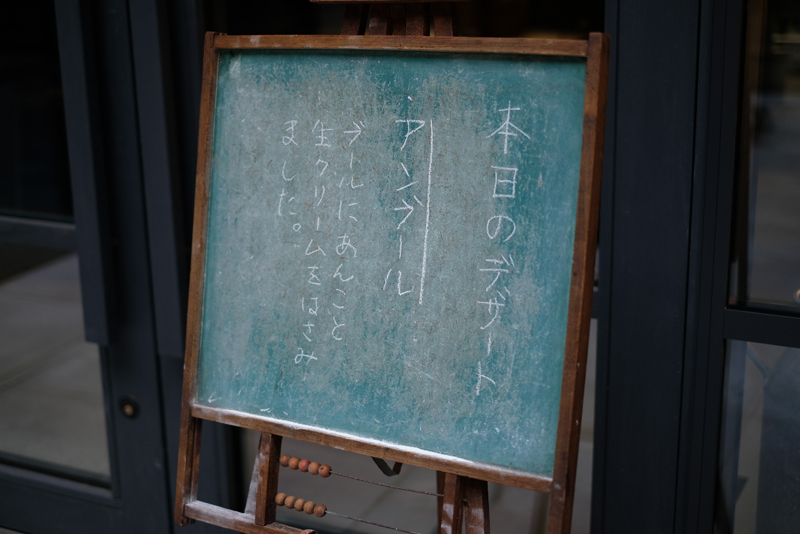 本日のデザート
アンブール
ブールにあんこと
生クリームをはさみ
ました。